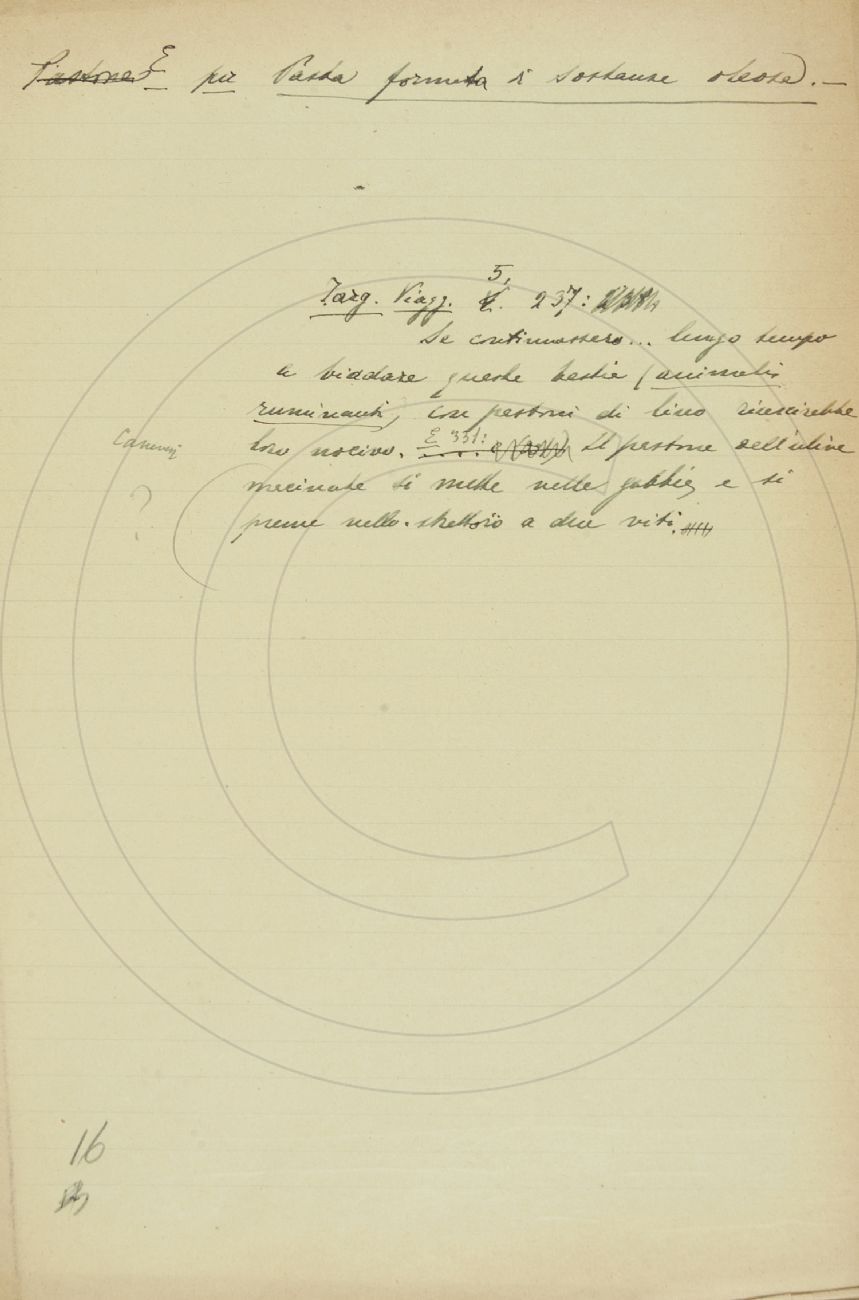 Pastone E per Pasta formata di sostanze oleose. —
Targ. Viagg. 5, 237:
Se continuassero... lungo tempo
a biadare queste bestie (animali
ruminanti, con pastoni di lino riuscirebbe
loro nocivo. E 331: Il pastone dell'ulive
macinate si mette nelle gabbie, e si
preme nello strettoio a due viti.
?
16